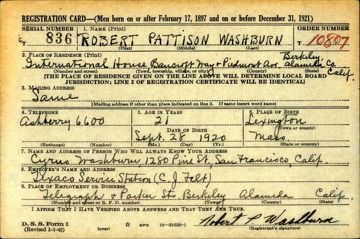 REGISTRATION CARD—(Men born on or after February 17, 1897 and on or before December 31, 1921)
SERIAL NUMBER 1. NAME (Print) ORDER NUMBER
836 ROBERT PATTISON WASHBURN 10807
2. PLACE OF RESIDENCE (Print)
International House Bancroft Way & Piedmont Ave. Berkeley Alameda Co. Calif.
(Number and street) (Town, township, village, or city) (County) (State)
[THE PLACE OF RESIDENCE GIVEN ON THE LINE ABOVE WILL DETERMINE LOCAL BOARD
JURISDICTION; LINE 2 OF REGISTRATION CERTIFICATE WILL BE IDENTICAL]
3. MAILING ADDRESS
Same
[Mailing address if other than place indicated on line 2. If same insert word same]
4. TELEPHONE 5. AGE IN YEARS 6. PLACE OF BIRTH
Ashberry 6600 21 Lexington
DATE OF BIRTH (Town or county)
Sept. 28 1920 Mass
(Exchange) (Number) (Mo.) (Day) (Yr.) (State or country)
7. NAME AND ADDRESS OF PERSON WHO WILL ALWAYS KNOW YOUR ADDRESS
Cyrus Washburn, 1280 Pine St. San Francisco, Calif.
8. EMPLOYER'S NAME AND ADDRESS
Texaco Service Station (C. J. Felt)
9. PLACE OF EMPLOYMENT OR BUSINESS
Telegraph & Parker Sts Berkeley Alameda Calif.
(Number and street or R. F. D. number) (Town) (County) (State)
I AFFIRM THAT I HAVE VERIFIED ABOVE ANSWERS AND THAT THEY ARE TRUE.
D. S. S. Form 1
(Revised 1-1-42) (over)
Robert P Washburn
(Registrant's signature)